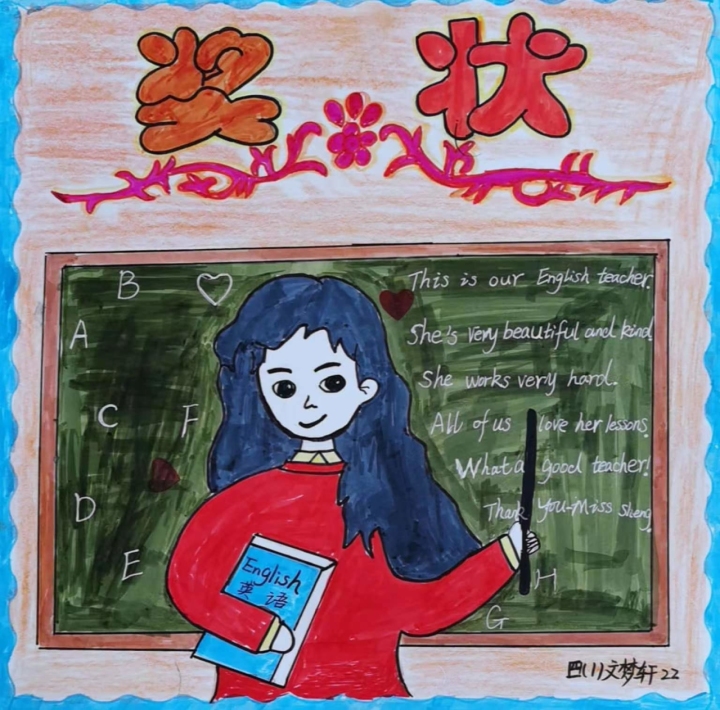 奖状
B
A
C F
D
E
This is our English teacher.
She's very beautiful and kind.
She works very hard.
All of us love her lessons.
What a good teacher!
Thank You-Miss Sheng.
H
G
English
英语
四(1)文梦轩22